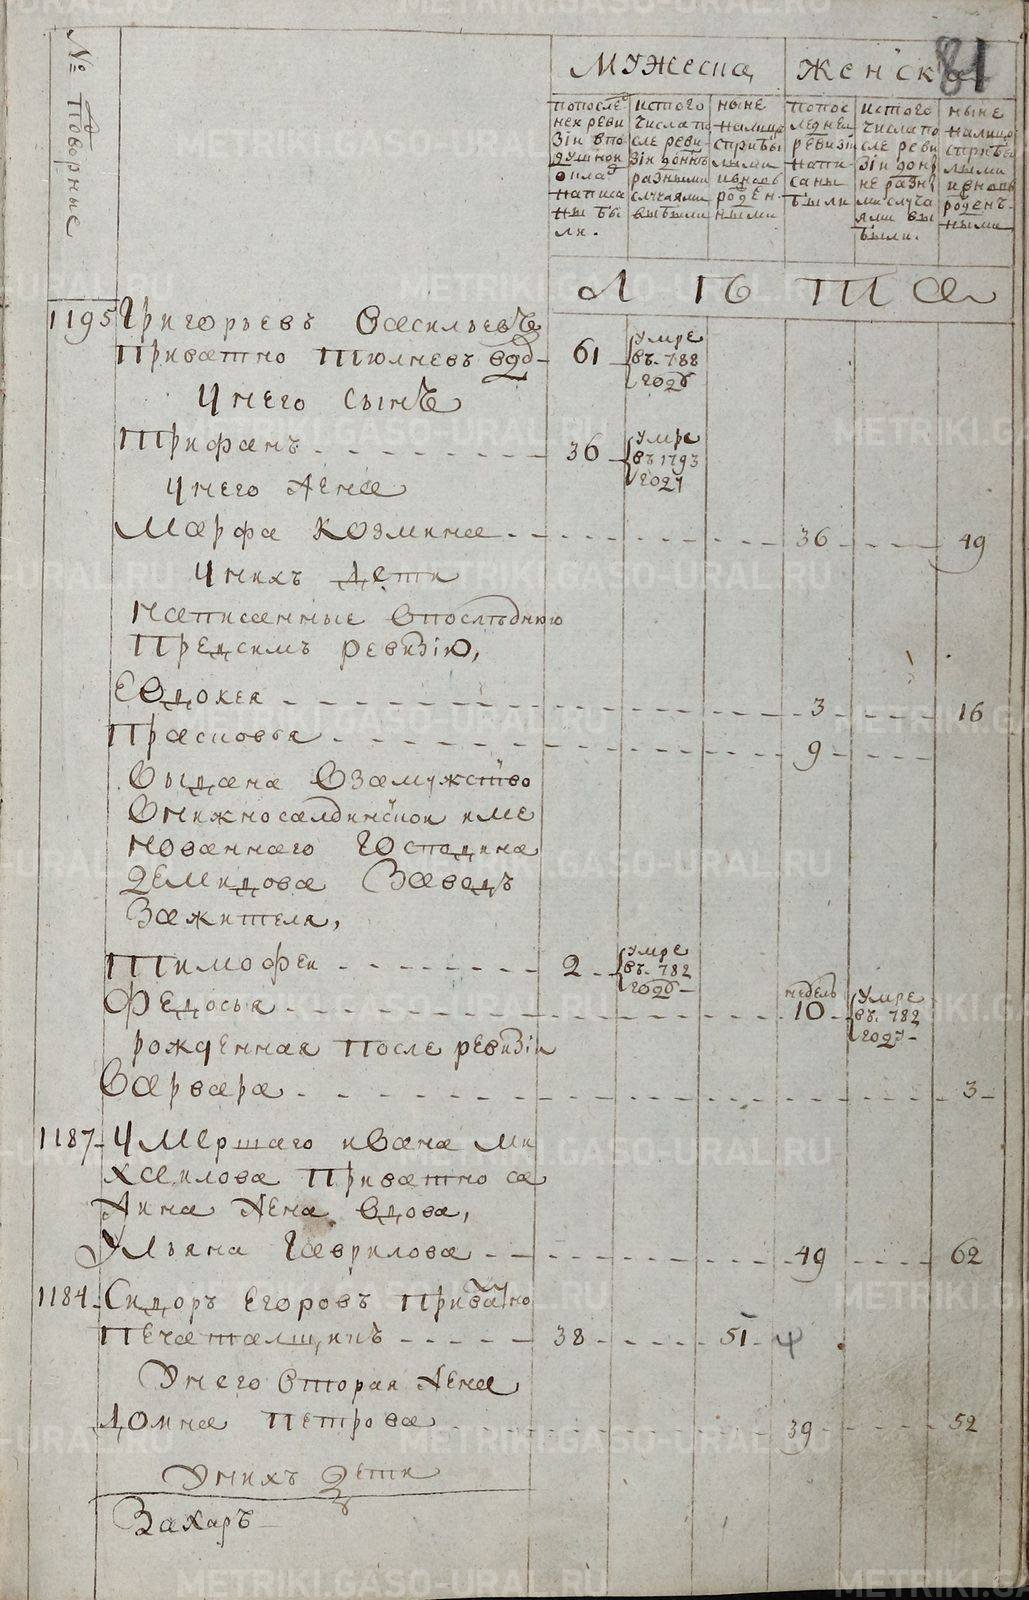 81
№ Подворные
Мужеска
Женска
попослед
ней реви
зіи впо
душной
оклад
написа
ны бы
ли.
истого
числа по
сле реви
зіи доннѣ
разными
случаями
выбыли
ныне
налицо
сприбы
лыми
ивновь
рожден
ными
попос
ледней
ревизіи
напи
саны
были
истого
числа по
сле реви
зіи дон
не разн
ми случа
ями вы
были.
ныне
налицо
сприбы
лыми
ивновь
рожденъ
ными
Лѣта
1195 Григорьевъ Васильевъ
Приватно Тюлневъ вдов 61 умре
въ 788
годѣ
Унего сынъ
Трифанъ 36 умре
въ 1793
году
Унего жена
Марфа Козмина 36 49
Унихъ дети
написанные впоследнюю
Предсимъ ревизію,
Евдокея 3 16
Прасковья 9
Выдана взамужство
внижносалдинской име
нованнаго Господина
Демидова Заводъ
Зажителя,
Тимофеи 2 умре
въ 782
годѣ
Федосья недель
10 умре
въ 782
году
рожденная после ревизіи
Варвара 3
1187 Умершаго ивана ми
хаилова Приватно са
жена вдова,
Ульяна Гаврилова 49 62
1184 Сидоръ Егоровъ Приватно
Печатальщикъ 38 51
Унего вторая жена
Домна Петрова 39 52
Унихъ дети
Захаръ
METRIKI.GASO-URAL.RU